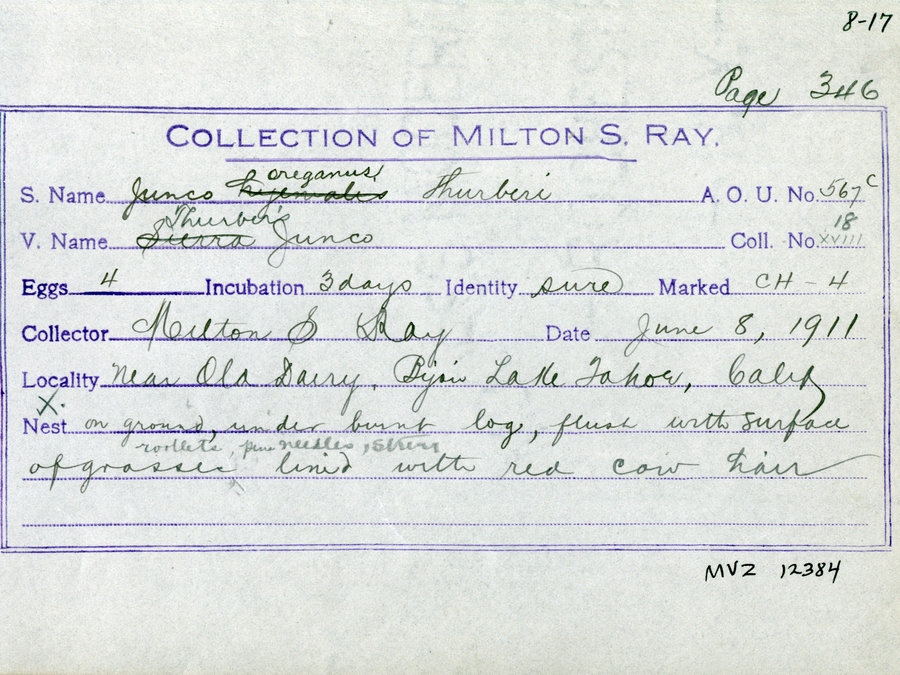 8-17
Page 346
COLLECTION OF MILTON S. RAY.
oreganus
S. Name Junco hyemalis Thurberi A. O. U. No. 567c
Thurber's 18
V. Name Sierra Junco Coll. No. XVIII
Eggs 4 Incubation 3 days Identity sure Marked CH - 4
Collector Milton S Ray Date June 8, 1911
Locality Near Old Dairy, Bijou Lake Tahoe, Calif
X.
Nest on ground, under burnt log, flush with surface
rootlets, pine needles,
of grasses lined with red cow hair
MVZ 12384